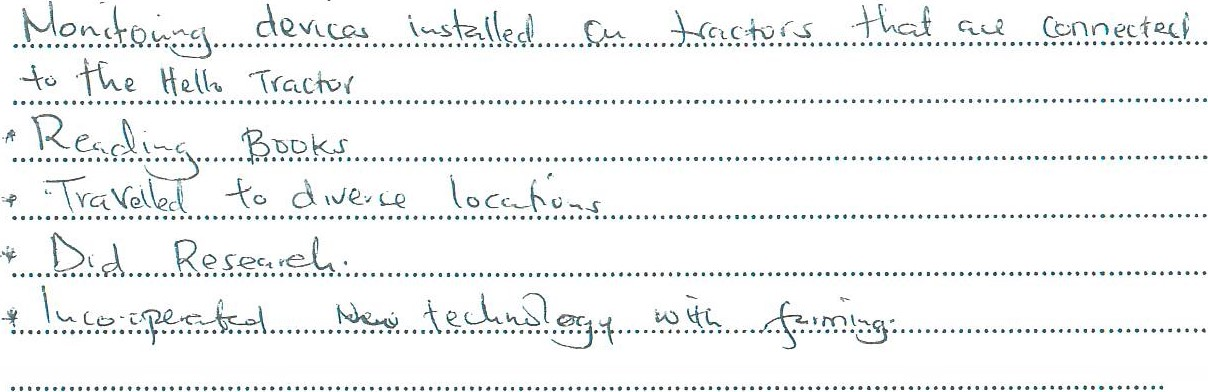 Monitoring devices installed on tractors that are connected
to the Hello Tractor
* Reading Books
* Travelled to diverse locations
* Did Research.
* Inco-operated New technology with farming.